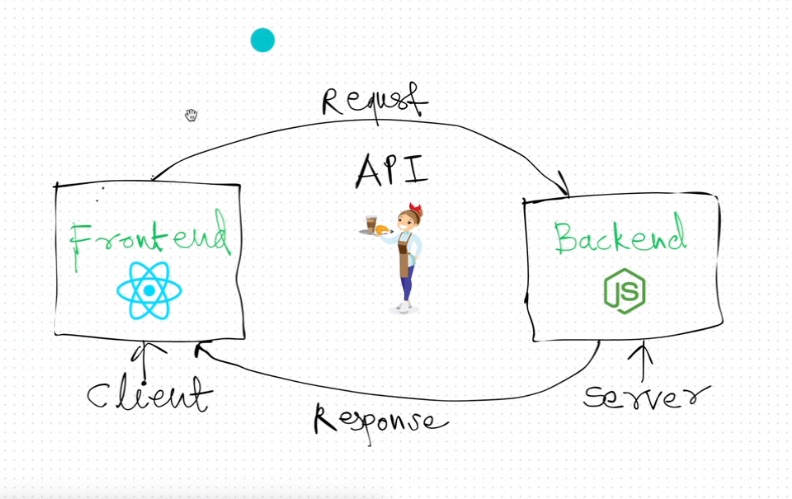 Requst
API
Frontend
Backend
JS
Client
Server
Response